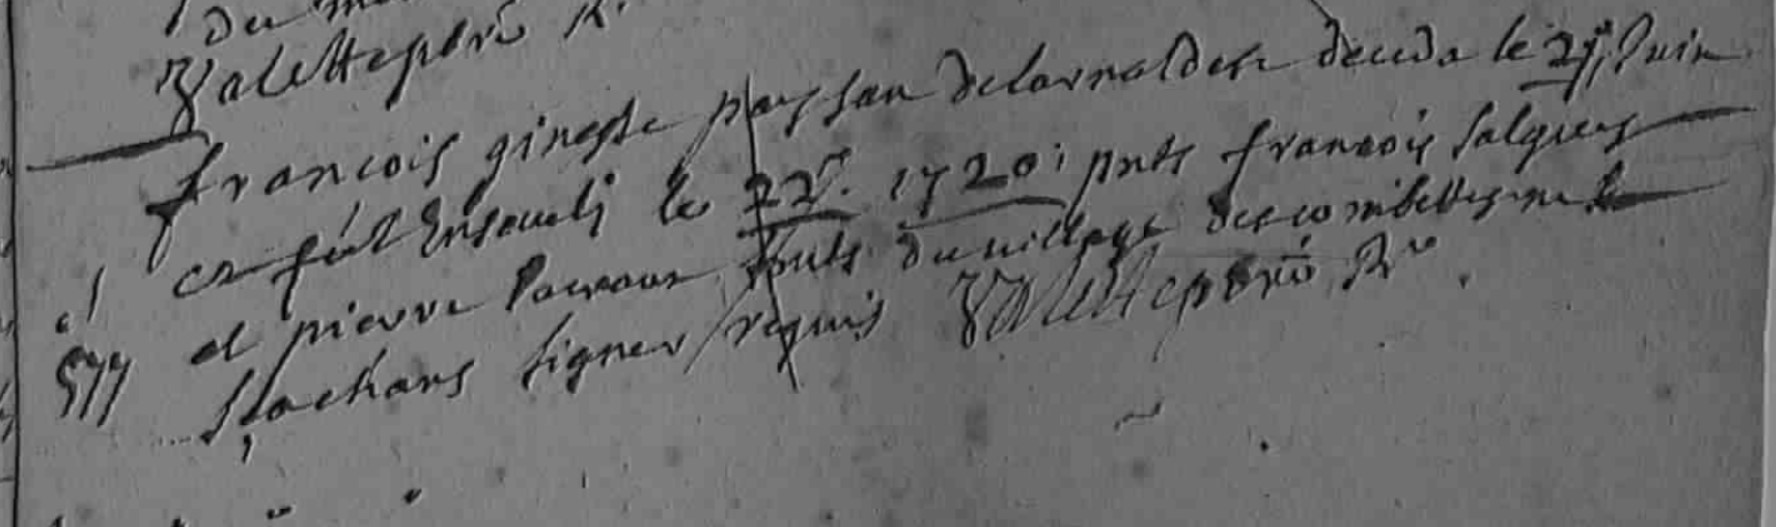 du
Valette ptre R.
françois gineste paysan delarnaldesc deceda le 21e Juin
et fut Enseueli le 22e. 1720; pnts françois salgues
577 et pierre pnts du village descombettes ne
sachans signer requis Valette ptre Rr.